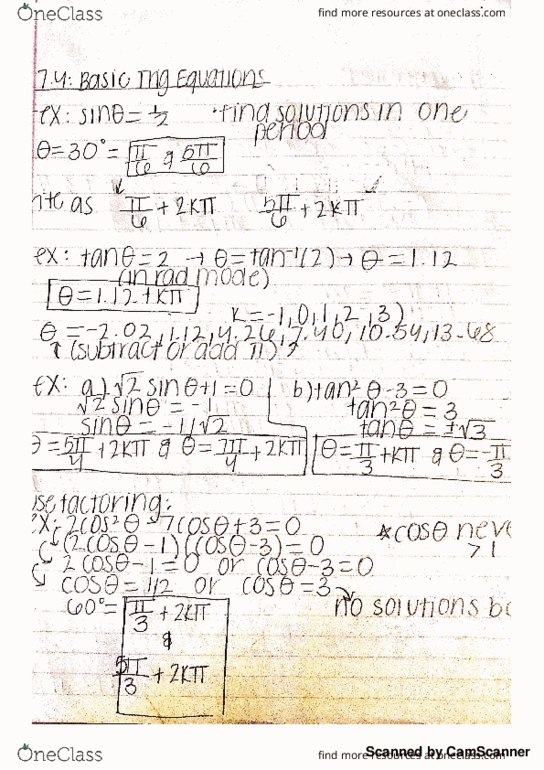 OneClass find more resources at oneclass.com
7.4: Basic Trig Equations
ex: sinθ = 1/2 · find solutions in one
period
θ = 30° = π/6 & 5π/6
as π/6 + 2kπ 5π/6 + 2kπ
ex: tanθ = 2 → θ = tan⁻¹(2) → θ = 1.12
(in rad mode)
θ = 1.12 + kπ
k = -1, 0, 1, 2, 3)
θ = -2.02, 1.12, 4.26, 7.40, 10.54, 13.68
↑ (subtract or add π)
EX: a) √2 sinθ + 1 = 0 b) tan²θ - 3 = 0
√2 sinθ = -1 tan²θ = 3
sinθ = -1/√2 tanθ = ±√3
θ = 5π/4 + 2kπ & θ = 7π/4 + 2kπ θ = π/3 + kπ & θ = -π/3
use factoring:
EX: 2cos²θ - 7cosθ + 3 = 0 *cosθ neve
(2cosθ - 1)(cosθ - 3) = 0 > 1
2cosθ - 1 = 0 or cosθ - 3 = 0
cosθ = 1/2 or cosθ = 3
60° = π/3 + 2kπ no solutions bc
&
5π/3 + 2kπ
OneClass find more resources at oneclass.com
Scanned by CamScanner